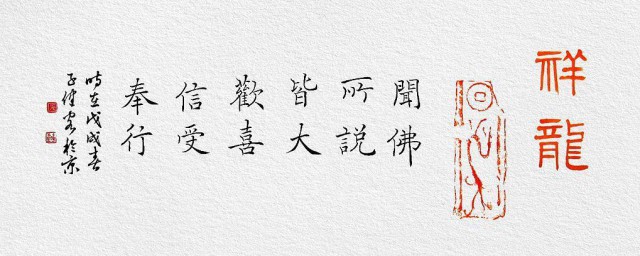 祥龍
聞佛
所説
皆大
歡喜
信受
奉行
時在戊戌春
於京